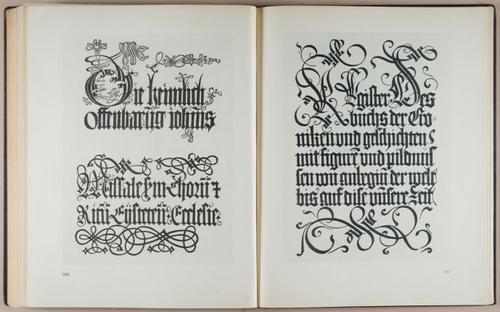 Die heimlich
offenbarūg iohnis
Missale hm Chorū ⁊
Ritū Eystetteñ Ecclesie
REgister Des
buchs der Cro-
niken vnd geschichten
mit figurē vnd pildnus
sen von anbegin der welt
bis auf dise vnsere Zeit